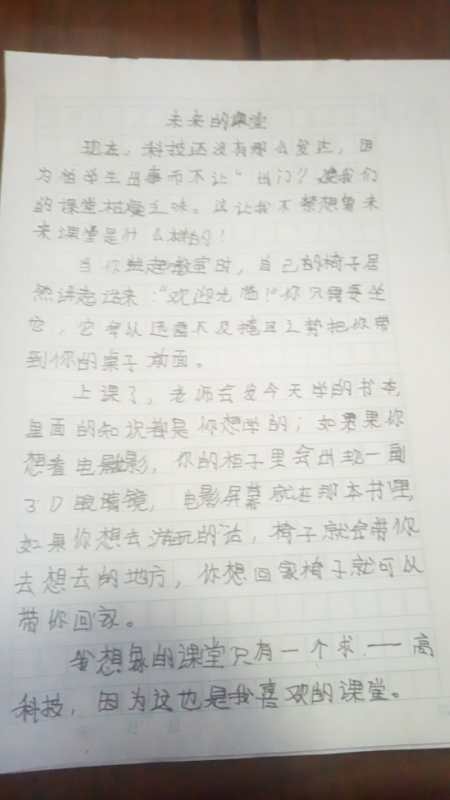 未来的课堂
现在，科技还没有那么发达，因
为怕学生出事而不让“出门”，使我们
的课堂枯燥乏味。这让我不禁想象未
来课堂是什么样的！
当你踏进教室时，自己的椅子居
然讲起话来：“欢迎光临！”你只需要坐
它，它会以迅雷不及掩耳之势把你带
到你的桌子前面。
上课了，老师会发今天学的书本，
里面的知识都是你想学的；如果你
想看电影，你的柜子里会出现一副
3D眼镜，电影屏幕就在那本书里，
如果你想去游玩的话，椅子就会带你
去想去的地方，你想回家椅子就可以
带你回家。
我想象的课堂只有一个求——高
科技，因为这也是我喜欢的课堂。